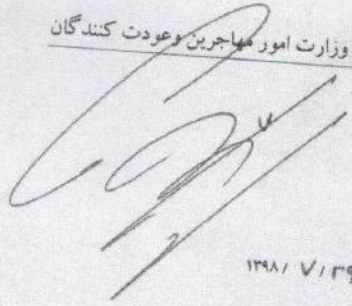 وزارت امور مهاجرین وعودت کنندگان
۱۳۹۸/ ۷/ ۲۹